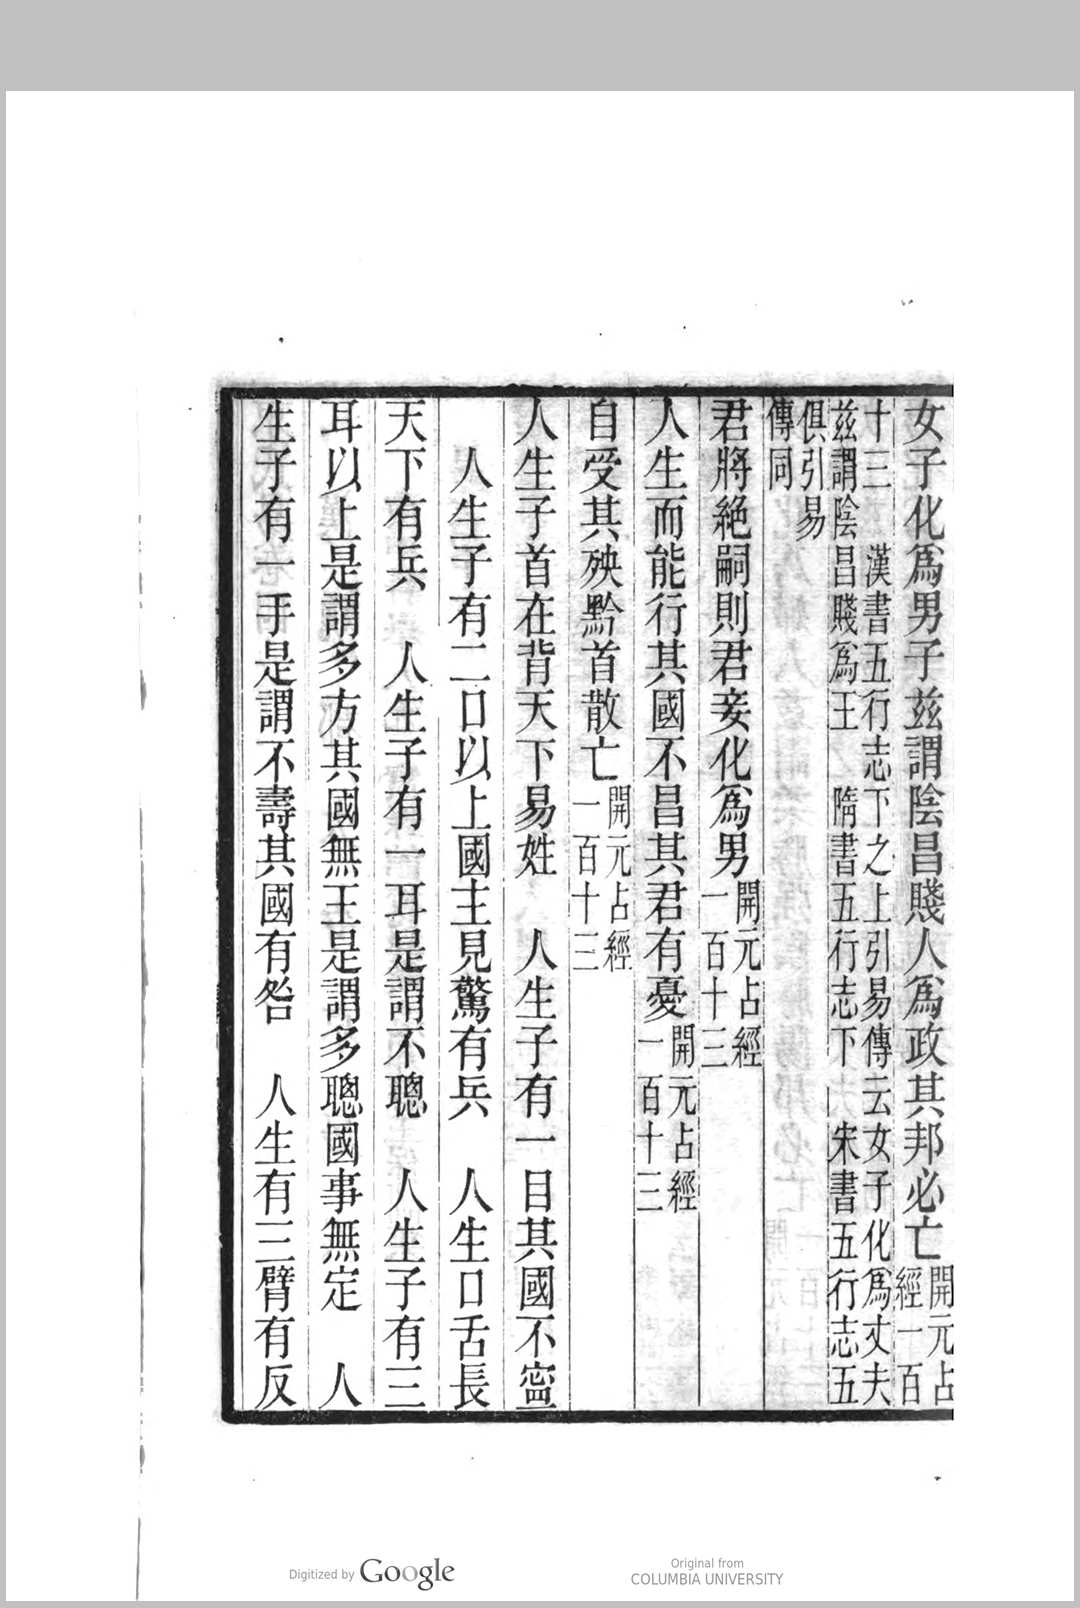 女子化爲男子兹謂陰昌賤人爲政其邦必亡開元占經一百
十三　漢書五行志下之上引易傳云女子化爲丈夫
兹謂陰昌賤爲王　隋書五行志下　宋書五行志五
俱引易
傳同
君將絕嗣則君妾化爲男開元占經一百十三
人生而能行其國不昌其君有憂開元占經一百十三
自受其殃黔首散亡開元占經一百十三
人生子首在背天下易姓　人生子有一目其國不寍
人生子有二口以上國主見驚有兵　人生口舌長
天下有兵　人生子有一耳是謂不聰　人生子有三
耳以上是謂多方其國無王是謂多聰國事無定　人
生子有一手是謂不壽其國有咎　人生有三臂有反
Digitized by Google
Original from
COLUMBIA UNIVERSITY